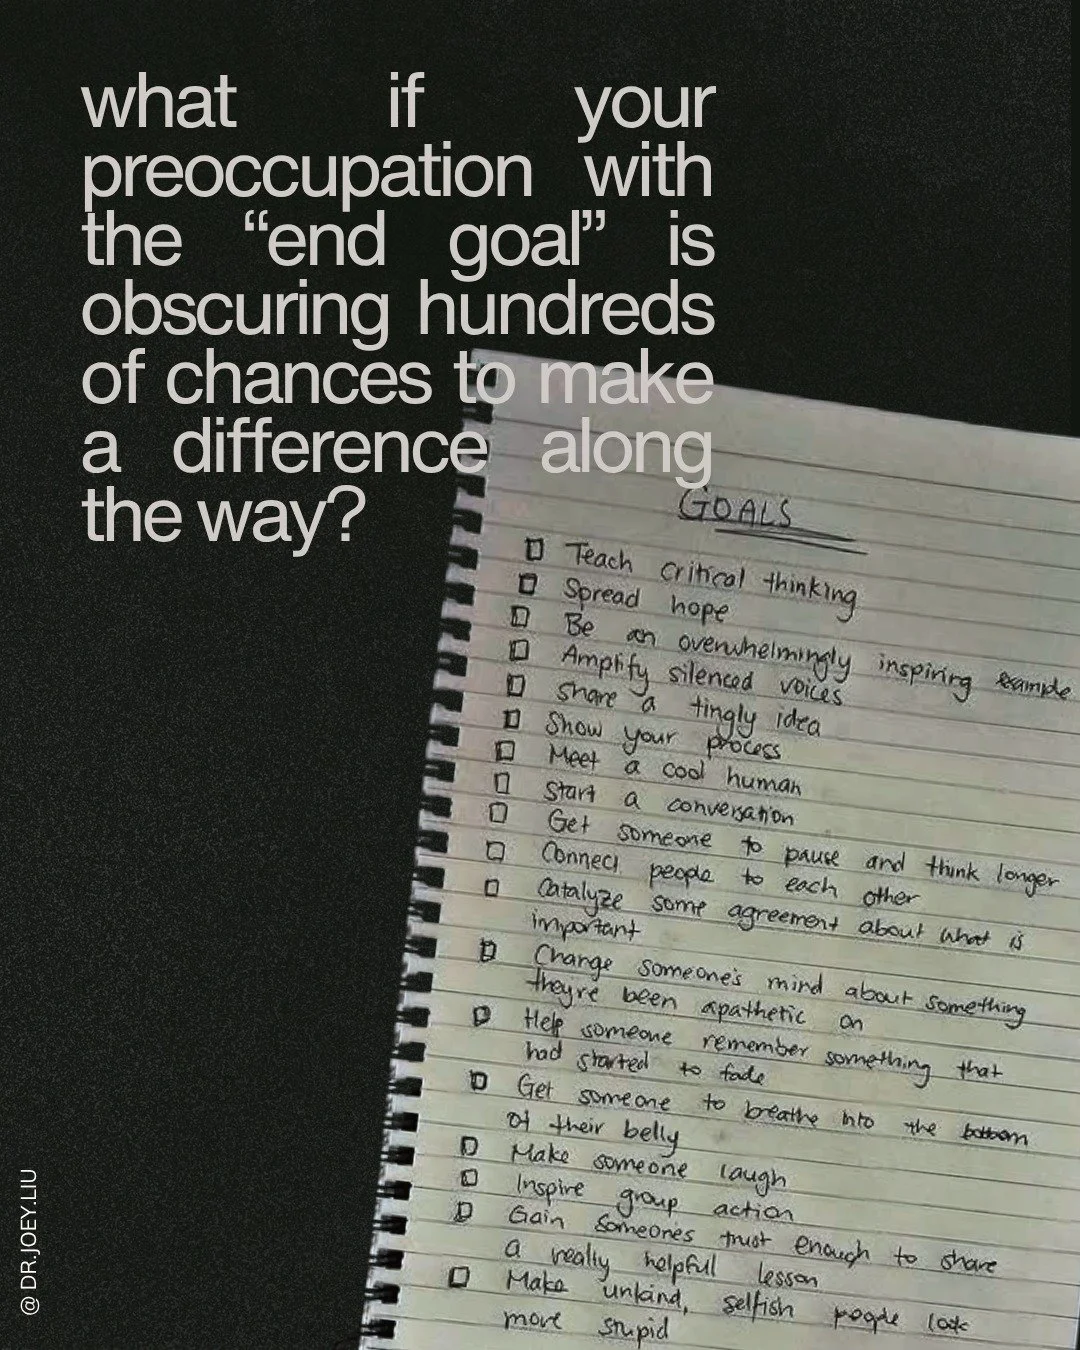 what if your
preoccupation with
the “end goal” is
obscuring hundreds
of chances to make
a difference along
the way?
GOALS
Teach critical thinking
Spread hope
Be an overwhelmingly inspiring example
Amplify silenced voices
Share a tingly idea
Show your process
Meet a cool human
Start a conversation
Get someone to pause and think longer
Connect people to each other
Catalyze some agreement about what is
important
Change someone's mind about something
they're been apathetic on
Help someone remember something that
had started to fade
Get someone to breathe into the bottom
of their belly
Make someone laugh
Inspire group action
Gain someones trust enough to share
a really helpful lesson
Make unkind, selfish people look
more stupid
@ DR.JOEY.LIU